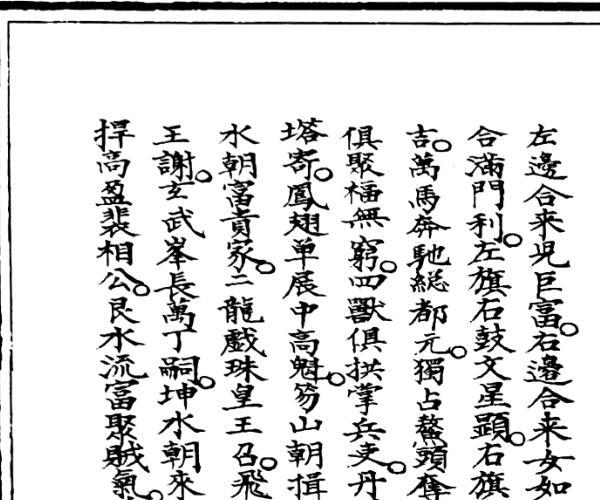 左邊合来児巨富。右邊合来女如
合滿門利。左旗右鼓文星顕。右旗
吉。萬馬奔馳総都元。獨占鰲頭奪
俱聚福無窮。四獸俱拱掌兵吏。丹
塔寄。鳳翅单展中高魁。笏山朝揖
水朝富貴家。二龍戯珠皇王召。飛
王謝。玄武峯長萬丁嗣。坤水朝來
捍高盈裴相公。艮水流富聚賊氣。